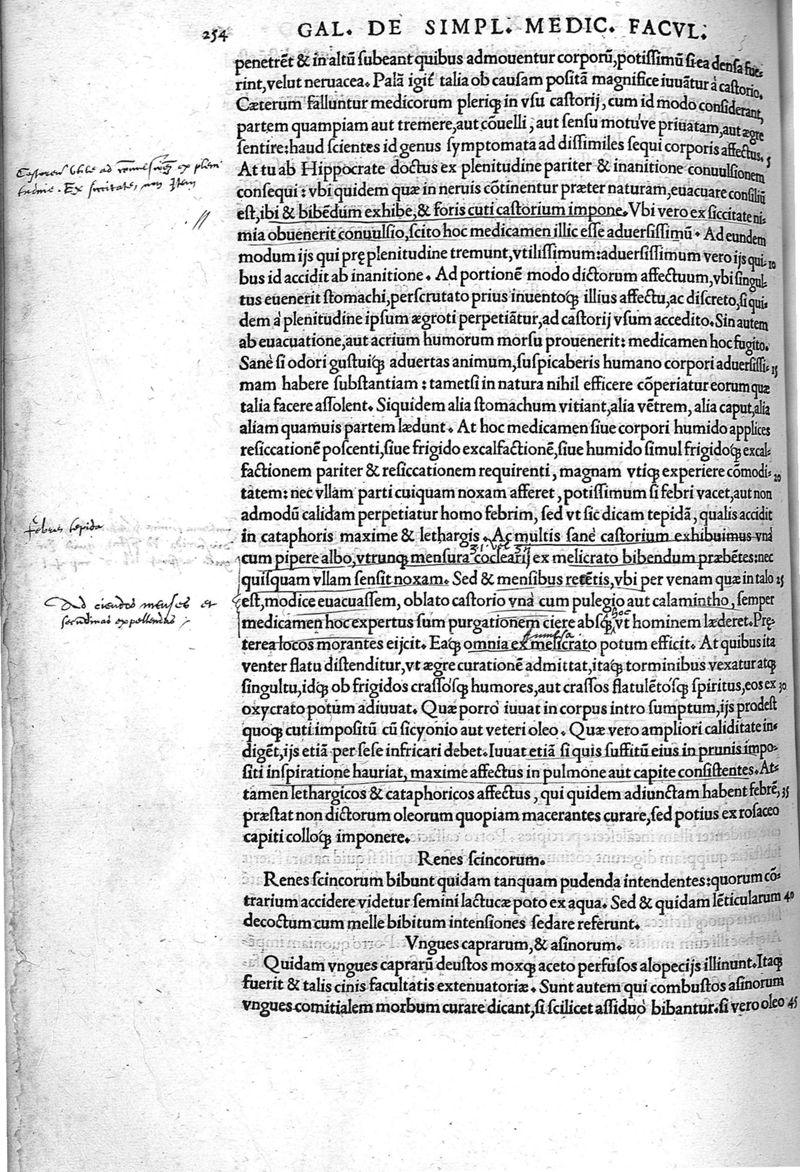 254 GAL. DE SIMPL. MEDIC. FACVL.
penetrēt & in altū subeant quibus admouentur corporū, potissimū si ea densa fue-
rint, velut neruacea. Palā igit talia ob causam positā magnifice iuuātur à castorio.
Cæterum falluntur medicorum pleriq; in vsu castorij, cum id modo considerant,
partem quampiam aut tremere, aut cōuelli, aut sensu motu've priuatam, aut ægre
sentire: haud scientes id genus symptomata ad dissimiles sequi corporis affectus. 5
At tu ab Hippocrate doctus ex plenitudine pariter & inanitione conuulsionem
consequi: vbi quidem quæ in neruis cōtinentur præter naturam, euacuare consiliū
est, ibi & bibēdum exhibe, & foris cuti castorium impone. Vbi vero ex siccitate ni-
mia obuenerit conuulsio, scito hoc medicamen illic esse aduersissimū. Ad eundem
modum ijs qui prę plenitudine tremunt, vtilissimum: aduersissimum vero ijs qui- 10
bus id accidit ab inanitione. Ad portionē modo dictorum affectuum, vbi singul-
tus euenerit stomachi, perscrutato prius inuentoq; illius affectu, ac discreto, si qui-
dem à plenitudine ipsum ægroti perpetiātur, ad castorij vsum accedito. Sin autem
ab euacuatione, aut acrium humorum morsu prouenerit: medicamen hoc fugito.
Sanè si odori gustuiq; aduertas animum, suspicaberis humano corpori aduersissi- 15
mam habere substantiam: tametsi in natura nihil efficere cōperiatur eorum quæ
talia facere assolent. Siquidem alia stomachum vitiant, alia vētrem, alia caput, alia
aliam quamuis partem lædunt. At hoc medicamen siue corpori humido applices
resiccationē poscenti, siue frigido excalfactionē, siue humido simul frigidoq; excal-
factionem pariter & resiccationem requirenti, magnam vtiq; experiere cōmodi- 20
tatem: nec vllam parti cuiquam noxam afferet, potissimum si febri vacet, aut non
admodū calidam perpetiatur homo febrim, sed vt sic dicam tepidā, qualis accidit
in cataphoris maxime & lethargis. Ac multis sanè castorium exhibuimus vnà
cum pipere albo, vtrunq; mensura coclearij ex melicrato bibendum præbētes: nec
quisquam vllam sensit noxam. Sed & mensibus retētis, vbi per venam quæ in talo 25
est, modice euacuassem, oblato castorio vnà cum pulegio aut calamintho, semper
medicamen hoc expertus sum purgationem ciere absq; vt hominem læderet. Prę-
terea locos morantes eijcit. Eaq; omnia ex melicrato potum efficit. At quibus ita
venter flatu distenditur, vt ægre curationē admittat, itaq; torminibus vexatur atq;
singultu, idq; ob frigidos crasso'sq; humores, aut crassos flatulēto'sq; spiritus, eos ex 30
oxycrato potum adiuuat. Quæ porrò iuuat in corpus intro sumptum, ijs prodest
quoq; cuti impositū cū sicyonio aut veteri oleo. Quæ vero ampliori caliditate in-
digēt, ijs etiā per sese infricari debet. Iuuat etiā si quis suffitū eius in prunis impo-
siti inspiratione hauriat, maxime affectus in pulmone aut capite consistentes. At-
tamen lethargicos & cataphoricos affectus, qui quidem adiunctam habent febrē, 35
præstat non dictorum oleorum quopiam macerantes curare, sed potius ex rosaceo
capiti colloq; imponere.
Renes scincorum.
Renes scincorum bibunt quidam tanquam pudenda intendentes: quorum cō-
trarium accidere videtur semini lactucæ poto ex aqua. Sed & quidam lēticularum 40
decoctum cum melle bibitum intensiones sedare referunt.
Vngues caprarum, & asinorum.
Quidam vngues caprarū deustos moxq; aceto perfusos alopecijs illinunt. Itaq;
fuerit & talis cinis facultatis extenuatoriæ. Sunt autem qui combustos asinorum
vngues comitialem morbum curare dicant, si scilicet assiduò bibantur. si vero oleo 45
febris tepida
Ad ciendos menses et
secundinas expellendas